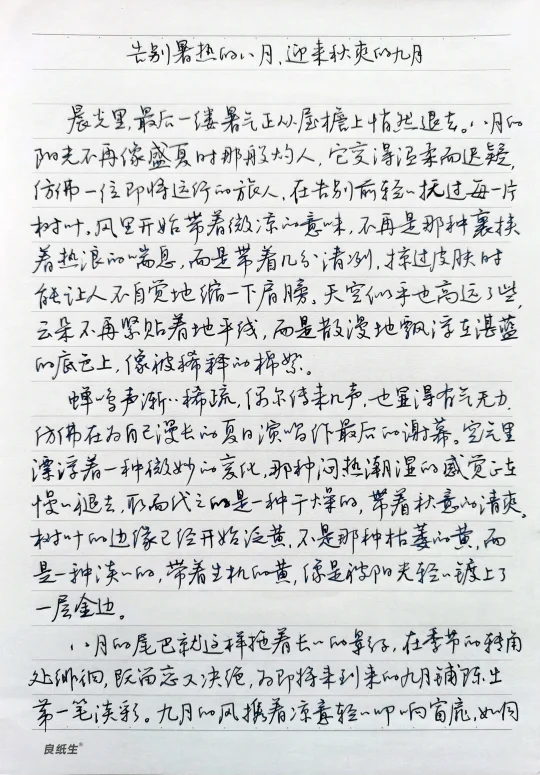 告别暑热的八月,迎来秋爽的九月
晨光里,最后一缕暑气正从屋檐上悄然退去。八月的
阳光不再像盛夏时那般灼人,它变得温柔而迟疑,
仿佛一位即将远行的旅人,在告别前轻轻抚过每一片
树叶。风里开始带着微凉的意味,不再是那种裹挟
着热浪的喘息,而是带着几分清冽,掠过皮肤时
能让人不自觉地缩一下肩膀。天空似乎也高远了些,
云朵不再紧贴着地平线,而是散漫地飘浮在湛蓝
的底色上,像被稀释的棉絮。
蝉鸣声渐渐稀疏,偶尔传来几声,也显得有气无力,
仿佛在为自己漫长的夏日演唱作最后的谢幕。空气里
漂浮着一种微妙的变化,那种闷热潮湿的感觉正在
慢慢退去,取而代之的是一种干燥的,带着秋意的清爽。
树叶的边缘已经开始泛黄,不是那种枯萎的黄,而
是一种淡淡的,带着生机的黄,像是被阳光轻轻镀上了
一层金边。
八月的尾巴就这样拖着长长的影子,在季节的转角
处徘徊,既留恋又决绝,为即将来到来的九月铺陈出
第一笔淡彩。九月的风携着凉意轻轻叩响窗扉,如同
良纸生®